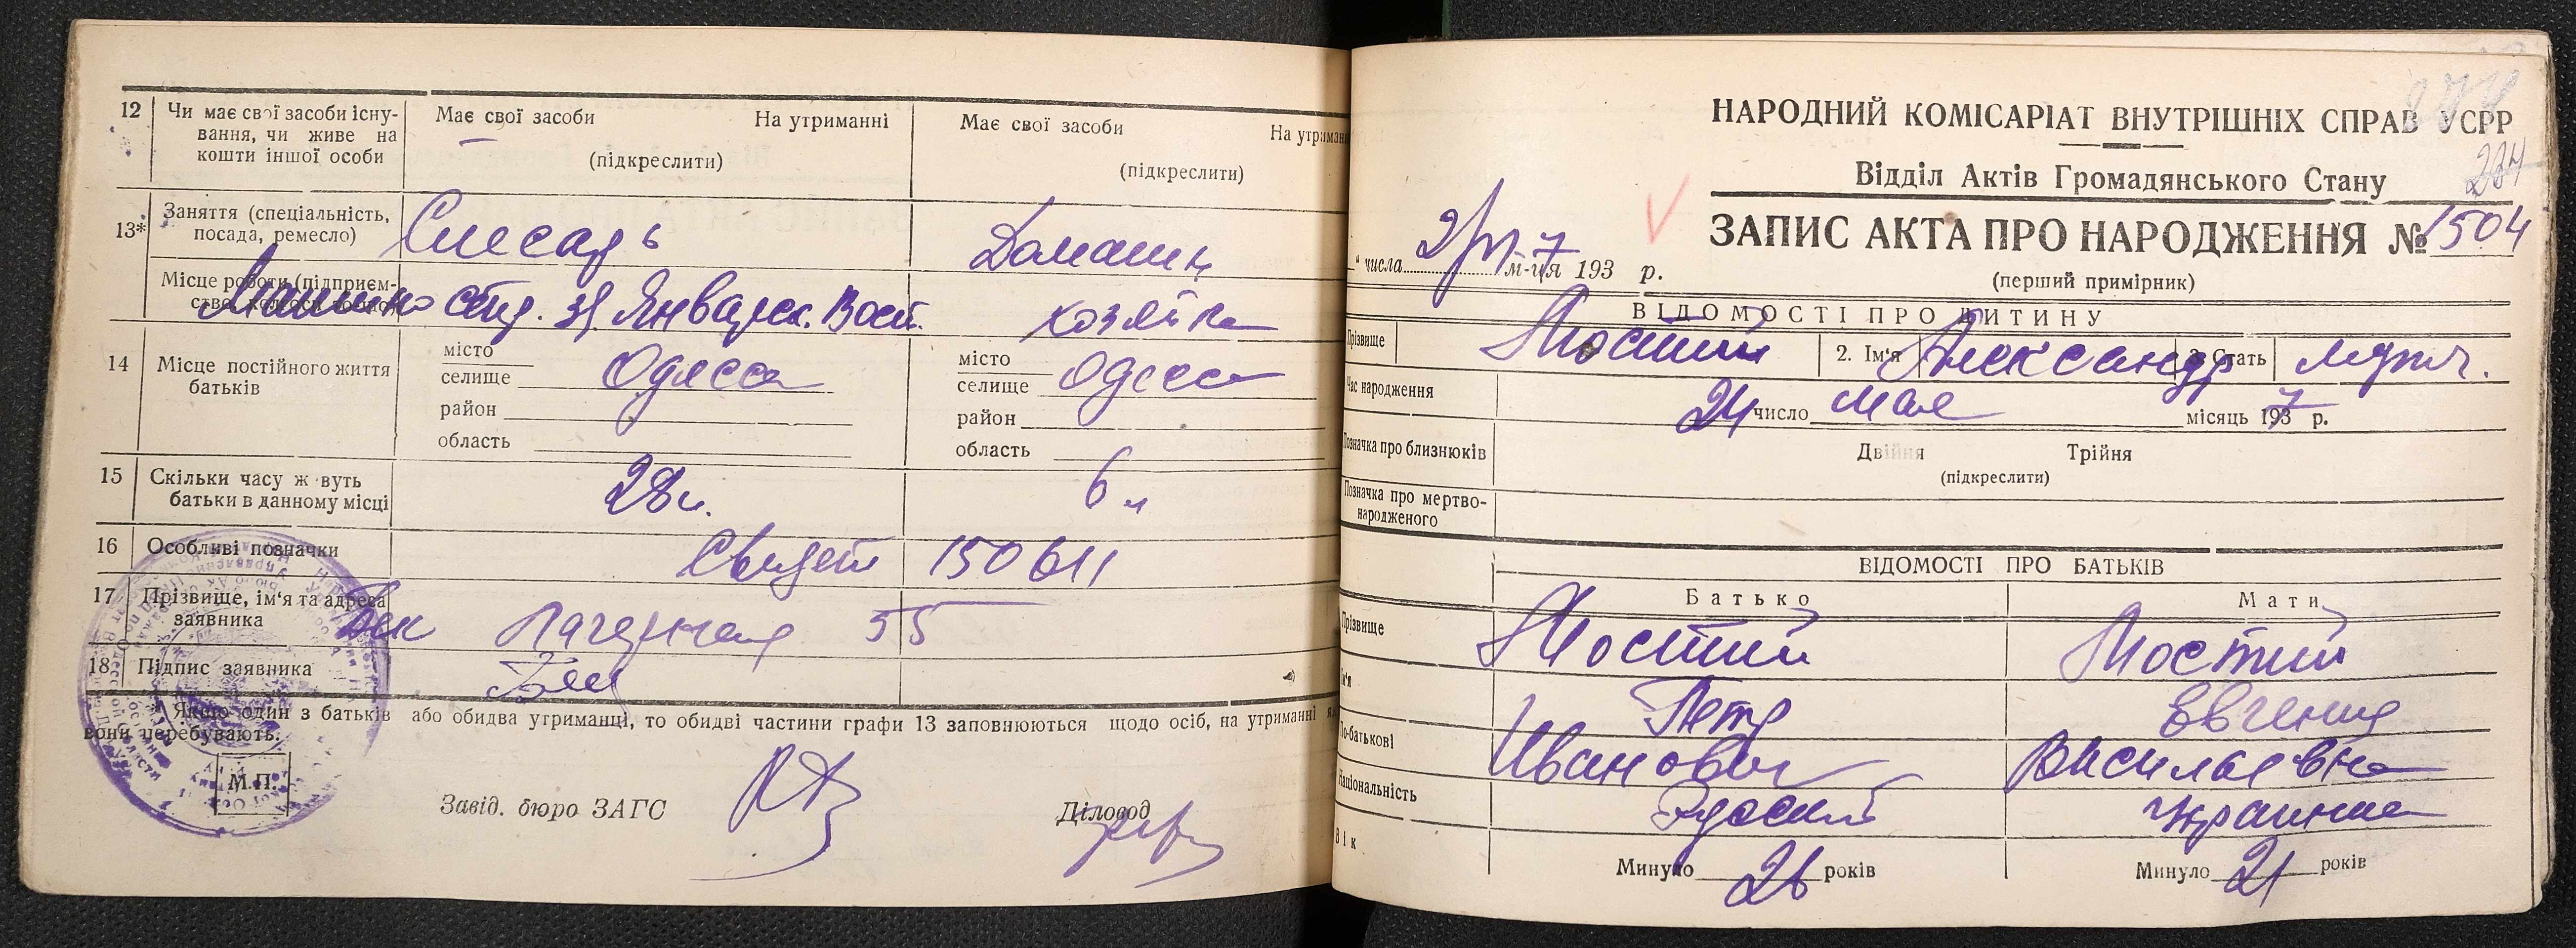 12 Чи має свої засоби існу-
вання, чи живе на
кошти іншої особи
Має свої засоби На утриманні
(підкреслити)
Має свої засоби На утриман
(підкреслити)
13* Заняття (спеціальність,
посада, ремесло)
Слесарь
Домашн
хозяйка
Місце роботи (підприєм-
Машиностр. з. Январск. Восст.
14 Місце постійного життя
батьків
місто
селище Одесса
район
область
місто
селище Одесса
район
область
15 Скільки часу живуть
батьки в данному місці
28 л.
6 л
16 Особливі позначки
Свидет 150611
17 Прізвище, ім'я та адреса
заявника
Лагерная 55
18 Підпис заявника
* Якщо один з батьків або обидва утриманці, то обидві частини графи 13 заповнюються щодо осіб, на утриманні я
вони перебувають.
М.П.
Завід. бюро ЗАГС
Діловод
НАРОДНИЙ КОМІСАРІАТ ВНУТРІШНІХ СПРАВ УСРР
234
Відділ Актів Громадянського Стану
ЗАПИС АКТА ПРО НАРОДЖЕННЯ № 1504
(перший примірник)
" числа 2/VI м-ця 1937 р.
ВІДОМОСТІ ПРО ДИТИНУ
Прізвище
2. Ім'я Александр 3. Стать муж.
Час народження
24 число мая місяць 1937 р.
Позначка про близнюків
Двійня Трійня
(підкреслити)
Позначка про мертво-
народженого
ВІДОМОСТІ ПРО БАТЬКІВ
Батько Мати
Прізвище
Ім'я Петр Евгения
По-батькові Иванович Васильевна
Національність Русский Украинка
Вік
Минуло 26 років
Минуло 21 років